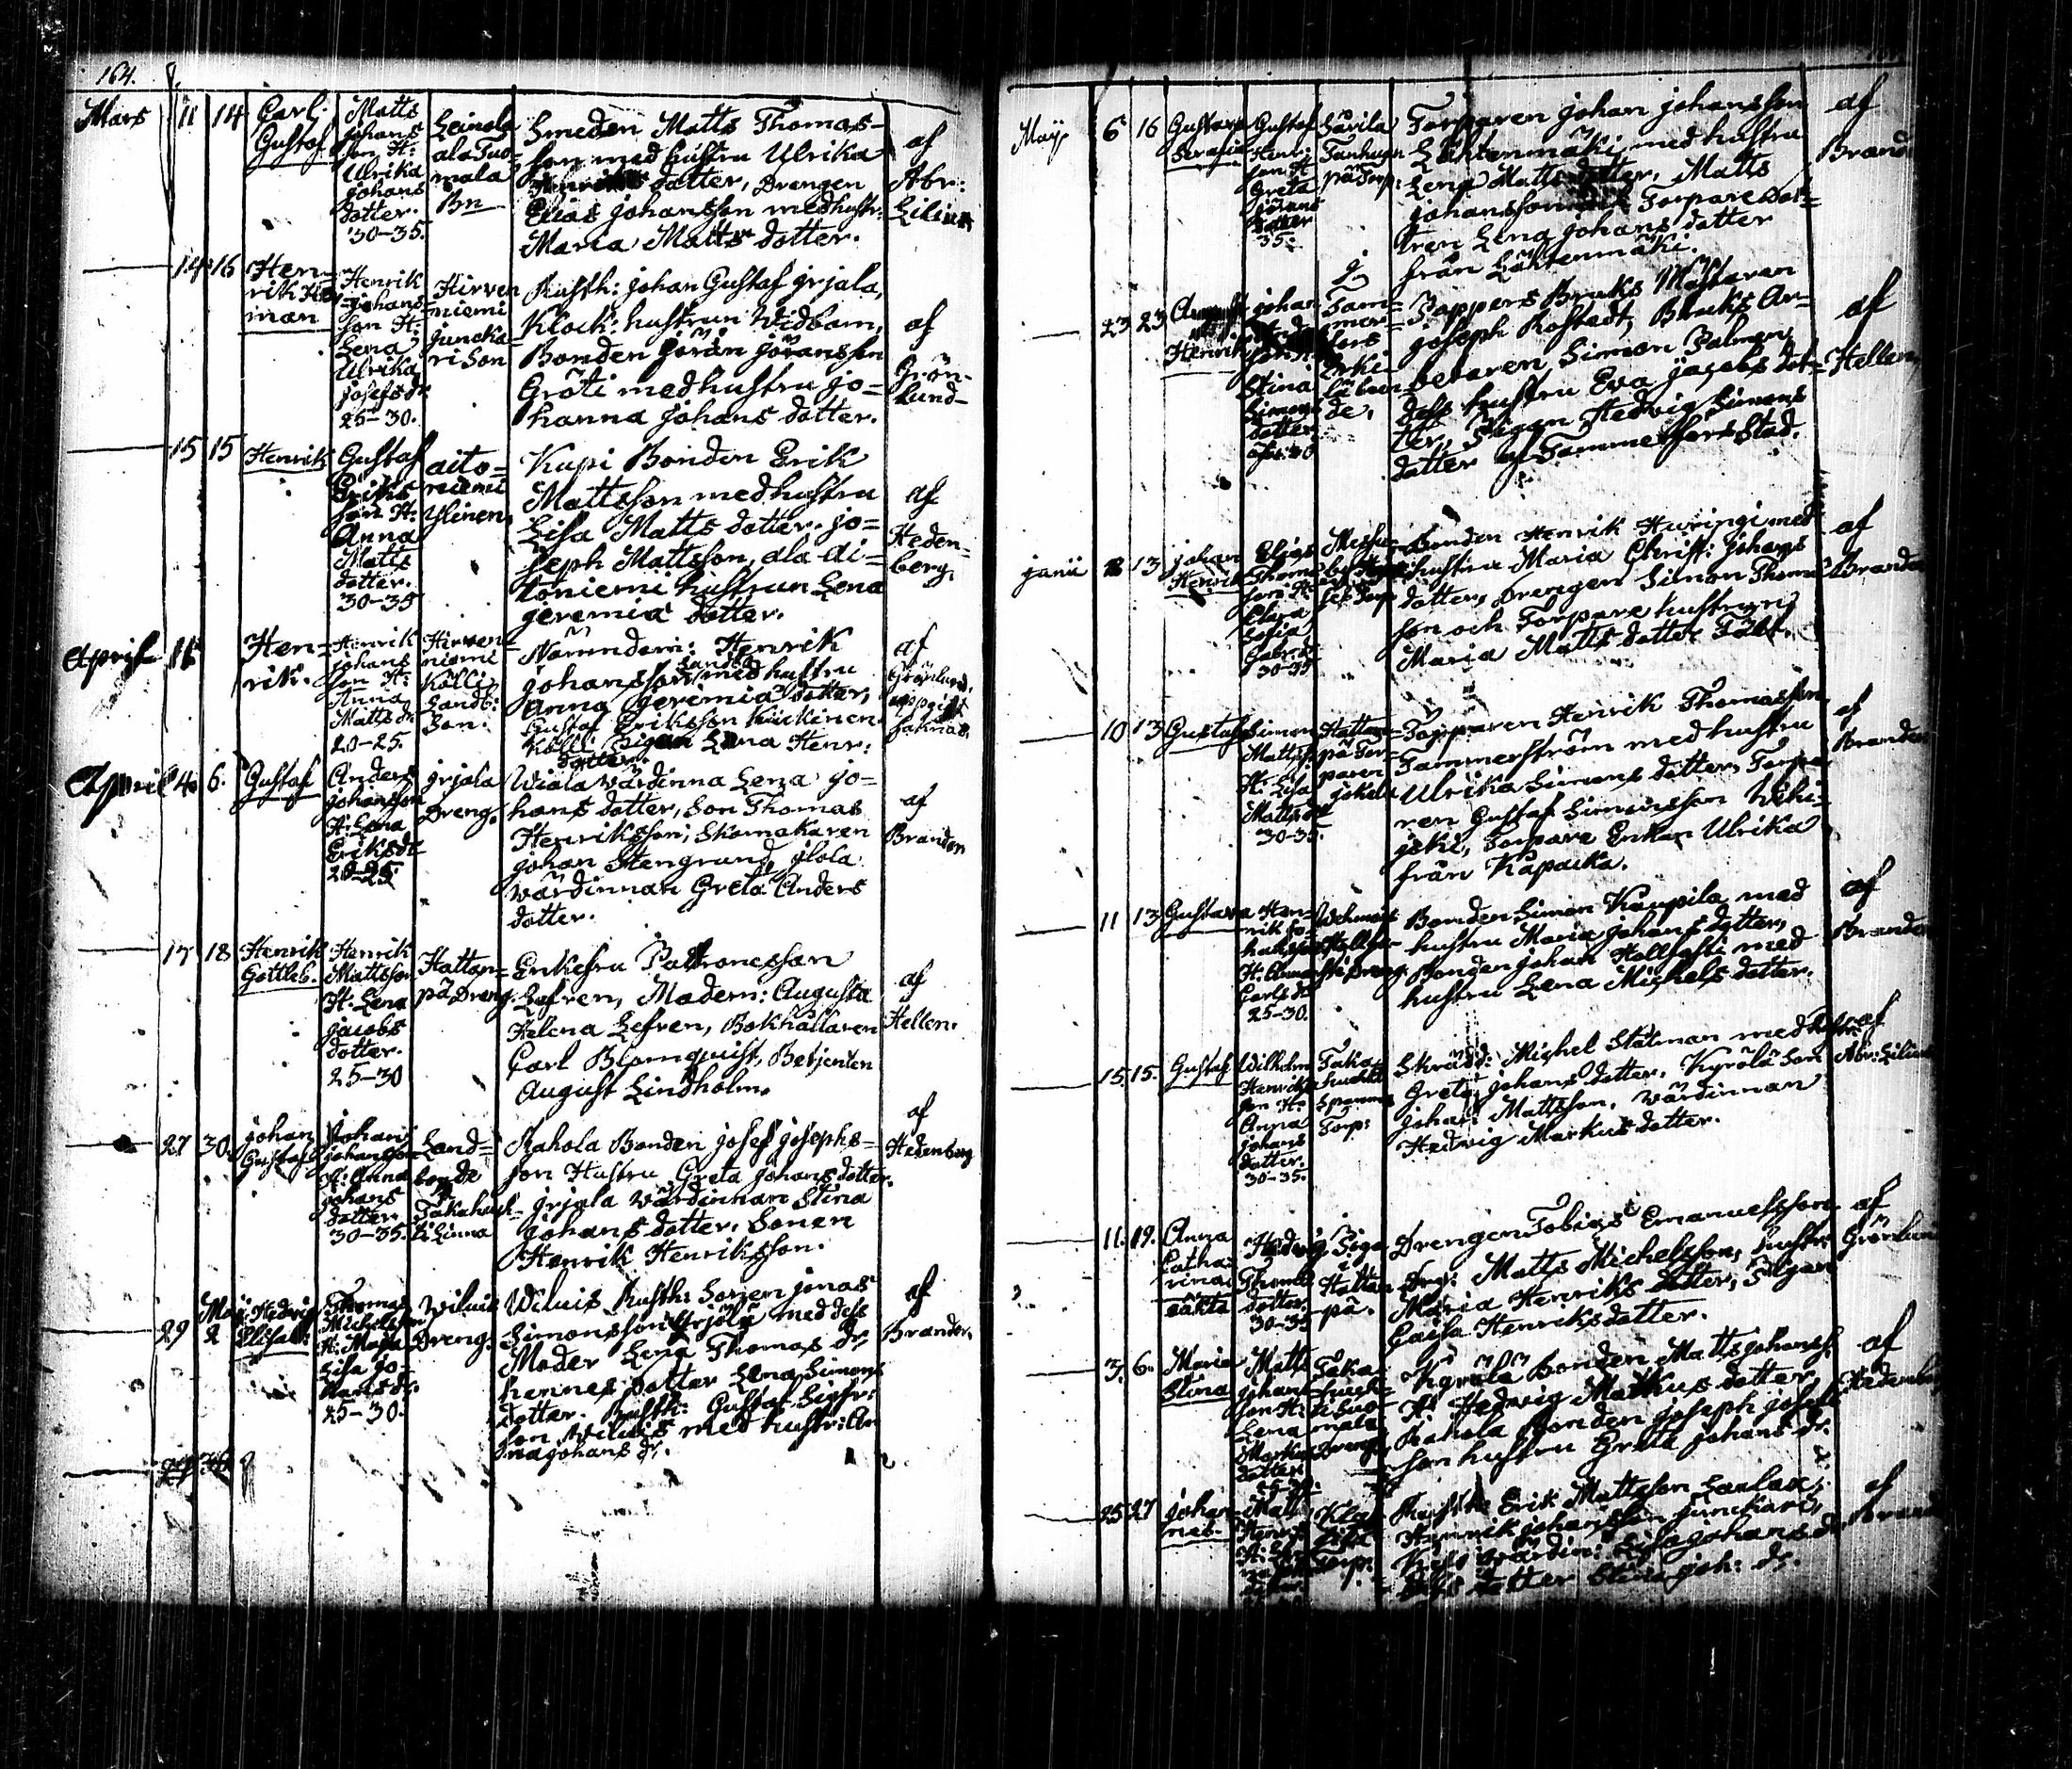 164.
Mars 11 14 Carl
Gustaf
Matts
Johans
son H:
Ulrika
Johans
dotter.
30-35.
Leinola
ala Tuo-
mala
Bn
Smeden Matts Thomas-
son med hustru Ulrika
Henriks dotter, Drengen
Elias Johansson med hustr:
Maria Matts dotter.
af
Abr:
Lilius
14 16 Hen-
rik Her
man
Henrik
Johans-
son H:
Lena
Ulrika
Josefs dr
25-30.
Hirven
niemi
juncka-
ri Son
Rusth: Johan Gustaf Jrjala,
Klock: hustrun Widbom,
Bonden Göran Göransson
Gröti med hustru Jo-
hanna Johans dotter.
af
Grön-
lund-
15 15 Henrik
Gustaf
Eriks
son H:
Anna
Matts
dotter.
30-35
aito-
niemi
Ylinen
Kupi Bonden Erik
Mattsson med hustru
Lisa Matts dotter. Jo-
seph Mattsson, ala Ai-
toniemi hustrun Lena
Jeremiæ dotter.
af
Heden-
berg
April 16 Hen-
rik.
Henrik
Johans
son H:
Anna
Matts dr
20-25.
Hirven-
niemi
Kölli
Landb:
Son.
Nämndem: Henrik
Johansson med hustru
Anna Jeremiæ dotter,
Gustaf Eriksson
Kölli Pigan Lena Henr:
dotter.
af
Grönlund.
uppgift
saknas.
April 4 6. Gustaf
Anders
Johansson
H: Lena
Eriks dr
20-25
Jrjala
Dreng.
Wiala Värdinna Lena Jo-
hans dotter, Son Thomas
Henriksson, Skomakaren
Johan Stengrund, Jlola
Värdinnan Greta Anders
dotter.
af
Brander
17 18 Henrik
Gottleb.
Henrik
Mattsson
H: Lena
Jacobs
dotter.
25-30
Hattan-
pä Dreng.
Enkefru Patronessan
Lefren, Madem: Augusta
Helena Lefren, Bokhållaren
Carl Blomquist, Betjenten
August Lindholm.
af
Hellen.
27 30. Johan
Gustaf
Johan
Johansson
H: Anna
Johans
dotter
30-35.
Land-
boende
Takahuch-
ti Linna
Rahola Bonden Josef Josephs-
son Hustru Greta Johans dotter.
Jrjala Värdinnan Stina
Johans dotter. Sonen
Henrik Henriksson.
af
Hedenberg
29 Maj
2
Hedvig
Elisab:
Thomas
Michelsson
H: Maja
Lisa Jo-
hans dr.
25-30.
Wiluis
Dreng.
Wiluis Rusth: Sonen Jonas
Simonsson Yrjölä med dess
Moder Lena Thomas dr
hennes dotter Lena Simons
dotter. Rusth: Gustaf Sigfr:
son Wiluis med hustr: An
na Johans dr.
af
Brander.
Maij 6 16 Gustava
Serafia
Gustaf
Henr:
son H
Greta
Görans
dotter
35.
Särila
Tanhuan
pä Torp:
Torparen Johan Johansson
Lähtenmäki med hustru
Lena Matts dotter, Matts
Johansson Torpare Dot-
tren Lena Johans dotter
från Lähtenmäki.
af
Brand
23 23 August
Henrik
Johan
Stina
Simons
dotter
öfv: 30
J
Tam-
mer-
fors
Kyrki-
lä boen-
de.
Pappers Bruks Mästaren
Joseph Rostedt, Bruks Ar-
betaren Simon Palmen
dess hustru Eva Jacobs dot-
ter, Pigan Hedvig Simons
dotter af Tammerfors Stad.
af
Hellen
Junii 8 13 Johan
Henrik
Elias
Thoms
son H:
Clara
Sofia
Gabr. dr
30-35
Bonden Henrik Huringi med
hustru Maria Christ: Johans
dotter, Drengen Simon Thoms
son och Torpare hustrun
Maria Matts dotter
af
Brander
10 13 Gustaf
Simon
Matts
H: Lisa
Matts dr
30-35.
Hattan-
pä Tor-
paren
Jokela
Torparen Henrik Thomasson
Tammerström med hustru
Ulrika Simons dotter, Torpa-
ren Gustaf Simonsson Wihi-
joki, Torpare Enkan Ulrika
från Kapacka.
af
Brander
11 13 Gustava
Hen-
rik Jo-
hansson
H: Anna
Carls dr
25-30.
Dreng.
Bonden Simon Kaupila med
hustru Maria Johans dotter,
Bonden Johan Hallfasti med
hustru Lena Michels dotter.
af
Brander
15. 15. Gustaf
Wilhelm
Henriks
son H:
Anna
Johans
dotter.
30-35.
Taka-
huchti
Torp:
Skrädd: Michel Stålman med hustru
Greta Johans dotter. Kyrölä Son
Johan Mattsson. Värdinnan
Hedwig Markus dotter.
af
Abr: Lilius
11. 19. Anna
Catha-
rina
oäkta
Hedvig
Thoms
dotter.
30-35
Piga
i
Hattan
pä.
Drengen Tobias Emanuelsson
Drg: Matts Michelsson, hustr:
Maria Henriks dotter, Pigan
Cajsa Henriksdotter.
af
Grönlund
3. 6. Maria
Stina
Matts
Johans
son H:
Lena
Markus
dotter
25-30.
Taka-
huch-
ti Tuo-
mala
Dreng
Kyrölä Bonden Matts Johanss.
H: Hedvig Markus dotter
Rahola Bonden Joseph Josefs
son hustru Greta Johans dr.
af
Hedenberg
25 27 Johan
Matts
Henriks
H:
Torp:
Rusth: Erik Mattsson Laulax,
Henrik Johansson Junckari,
Värdin: Lisa Johans dr
dess dotter Stina Joh: dr.
af
Brand